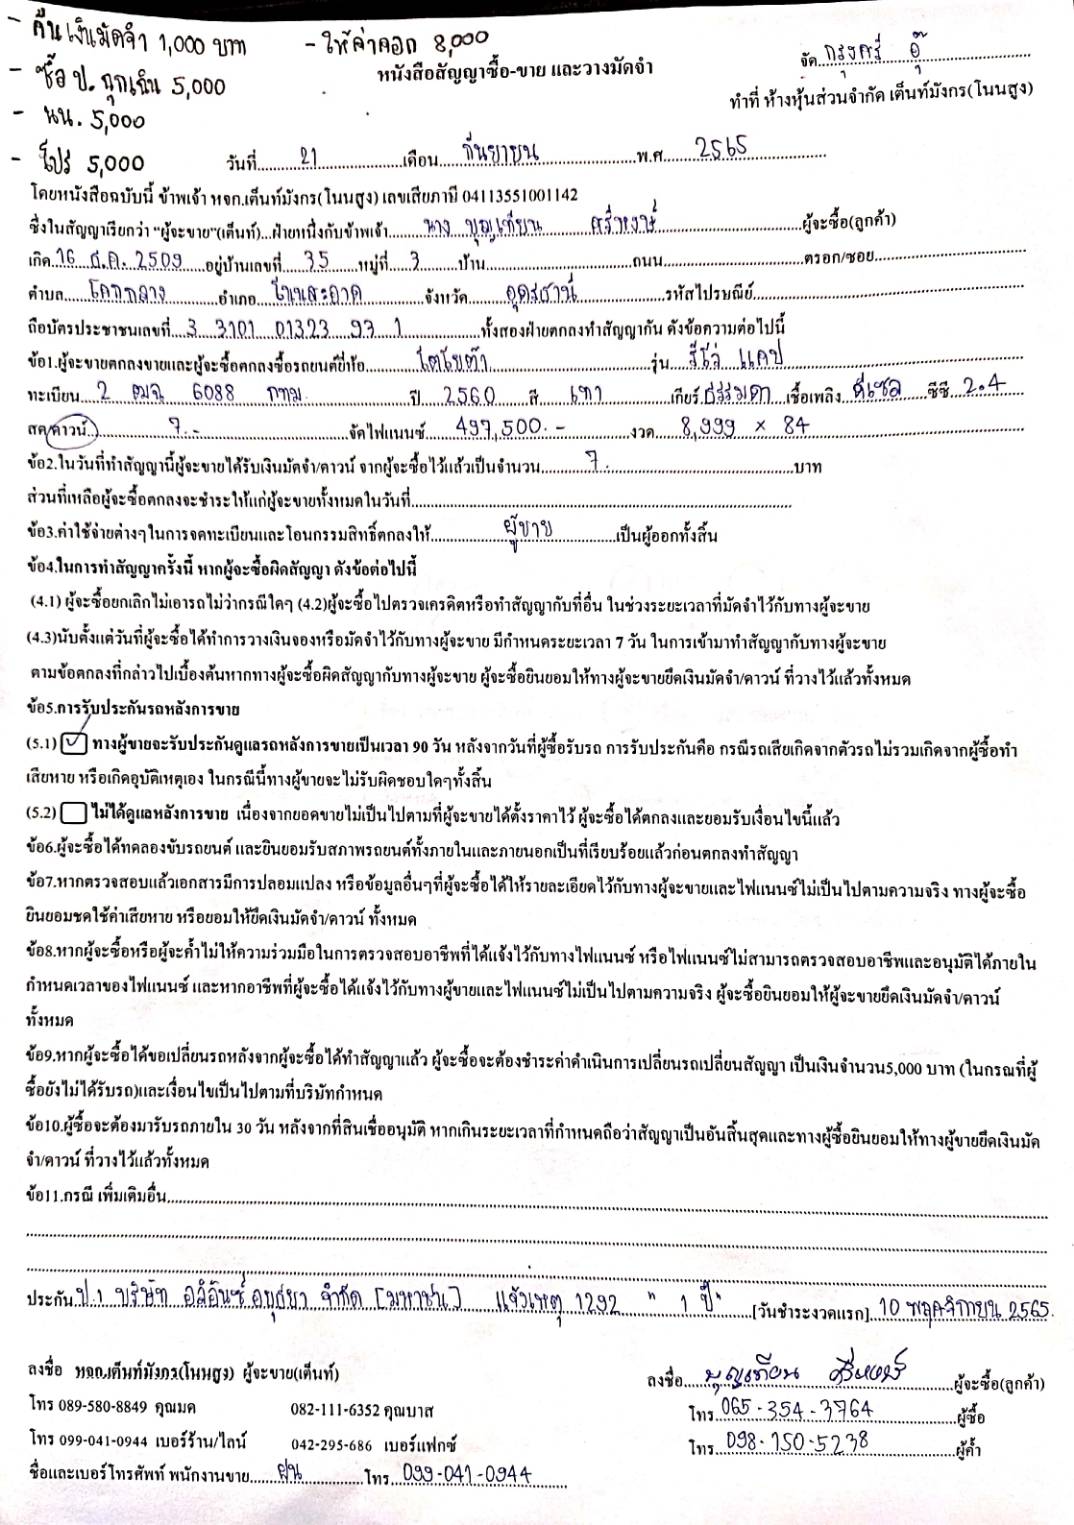 - คืนเงินมัดจำ 1,000 บาท - ให้ค่าคอก 8,000
หนังสือสัญญาซื้อ-ขาย และวางมัดจำ
จัด กรุงศรี อุ๊
- ซื้อ ป. ฉุกเฉิน 5,000
ทำที่ ห้างหุ้นส่วนจำกัด เต็นท์มังกร(โนนสูง)
- นน. 5,000
- โปร 5,000
วันที่ 21 เดือน กันยายน พ.ศ. 2565
โดยหนังสือฉบับนี้ ข้าพเจ้า หจก.เต็นท์มังกร(โนนสูง) เลขเสียภาษี 04113551001142
ซึ่งในสัญญาเรียกว่า "ผู้จะขาย"(เต็นท์)...ฝ่ายหนึ่งกับข้าพเจ้า นาง บุญเทียน ศรีหงษ์ ผู้จะซื้อ(ลูกค้า)
เกิด 16 ธ.ค. 2509 อยู่บ้านเลขที่ 35 หมู่ที่ 3 บ้าน ถนน ตรอก/ซอย
ตำบล โคกกลาง อำเภอ โนนสะอาด จังหวัด อุดรธานี รหัสไปรษณีย์
ถือบัตรประชาชนเลขที่ 3 3101 01323 93 1 ทั้งสองฝ่ายตกลงทำสัญญากัน ดังข้อความต่อไปนี้
ข้อ1.ผู้จะขายตกลงขายและผู้จะซื้อตกลงซื้อรถยนต์ยี่ห้อ โตโยต้า รุ่น รีโว่ แคป
ทะเบียน 2 ฒฉ 6088 กทม ปี 2560 สี เทา เกียร์ ธรรมดา เชื้อเพลิง ดีเซล ซีซี 2.4
สด/ดาวน์ 7.- จัดไฟแนนซ์ 497,500.- งวด 8,999 × 84
ข้อ2.ในวันที่ทำสัญญานี้ผู้จะขายได้รับเงินมัดจำ/ดาวน์ จากผู้จะซื้อไว้แล้วเป็นจำนวน 7. บาท
ส่วนที่เหลือผู้จะซื้อตกลงจะชำระให้แก่ผู้จะขายทั้งหมดในวันที่
ข้อ3.ค่าใช้จ่ายต่างๆในการจดทะเบียนและโอนกรรมสิทธิ์ตกลงให้ ผู้ขาย เป็นผู้ออกทั้งสิ้น
ข้อ4.ในการทำสัญญาครั้งนี้ หากผู้จะซื้อผิดสัญญา ดังข้อต่อไปนี้
(4.1) ผู้จะซื้อยกเลิกไม่เอารถไม่ว่ากรณีใดๆ (4.2)ผู้จะซื้อไปตรวจเครดิตหรือทำสัญญากับที่อื่น ในช่วงระยะเวลาที่มัดจำไว้กับทางผู้จะขาย
(4.3)นับตั้งแต่วันที่ผู้จะซื้อได้ทำการวางเงินจองหรือมัดจำไว้กับทางผู้จะขาย มีกำหนดระยะเวลา 7 วัน ในการเข้ามาทำสัญญากับทางผู้จะขาย
ตามข้อตกลงที่กล่าวไปเบื้องต้นหากทางผู้จะซื้อผิดสัญญากับทางผู้จะขาย ผู้จะซื้อยินยอมให้ทางผู้จะขายยึดเงินมัดจำ/ดาวน์ ที่วางไว้แล้วทั้งหมด
ข้อ5.การรับประกันรถหลังการขาย
(5.1) ✓ ทางผู้ขายจะรับประกันดูแลรถหลังการขายเป็นเวลา 90 วัน หลังจากวันที่ผู้ซื้อรับรถ การรับประกันคือ กรณีรถเสียเกิดจากตัวรถไม่รวมเกิดจากผู้ซื้อทำ
เสียหาย หรือเกิดอุบัติเหตุเอง ในกรณีนี้ทางผู้ขายจะไม่รับผิดชอบใดๆทั้งสิ้น
(5.2) ไม่ได้ดูแลหลังการขาย เนื่องจากยอดขายไม่เป็นไปตามที่ผู้จะขายได้ตั้งราคาไว้ ผู้จะซื้อได้ตกลงและยอมรับเงื่อนไขนี้แล้ว
ข้อ6.ผู้จะซื้อได้ทดลองขับรถยนต์ และยินยอมรับสภาพรถยนต์ทั้งภายในและภายนอกเป็นที่เรียบร้อยแล้วก่อนตกลงทำสัญญา
ข้อ7.หากตรวจสอบแล้วเอกสารมีการปลอมแปลง หรือข้อมูลอื่นๆที่ผู้จะซื้อได้ให้รายละเอียดไว้กับทางผู้จะขายและไฟแนนซ์ไม่เป็นไปตามความจริง ทางผู้จะซื้อ
ยินยอมชดใช้ค่าเสียหาย หรือยอมให้ยึดเงินมัดจำ/ดาวน์ ทั้งหมด
ข้อ8.หากผู้จะซื้อหรือผู้จะค้ำไม่ให้ความร่วมมือในการตรวจสอบอาชีพที่ได้แจ้งไว้กับทางไฟแนนซ์ หรือไฟแนนซ์ไม่สามารถตรวจสอบอาชีพและอนุมัติได้ภายใน
กำหนดเวลาของไฟแนนซ์ และหากอาชีพที่ผู้จะซื้อได้แจ้งไว้กับทางผู้ขายและไฟแนนซ์ไม่เป็นไปตามความจริง ผู้จะซื้อยินยอมให้ผู้จะขายยึดเงินมัดจำ/ดาวน์
ทั้งหมด
ข้อ9.หากผู้จะซื้อได้ขอเปลี่ยนรถหลังจากผู้จะซื้อได้ทำสัญญาแล้ว ผู้จะซื้อจะต้องชำระค่าดำเนินการเปลี่ยนรถเปลี่ยนสัญญา เป็นเงินจำนวน5,000 บาท (ในกรณที่ผู้
ซื้อยังไม่ได้รับรถ)และเงื่อนไขเป็นไปตามที่บริษัทกำหนด
ข้อ10.ผู้ซื้อจะต้องมารับรถภายใน 30 วัน หลังจากที่สินเชื่ออนุมัติ หากเกินระยะเวลาที่กำหนดถือว่าสัญญาเป็นอันสิ้นสุดและทางผู้ซื้อยินยอมให้ทางผู้ขายยึดเงินมัด
จำ/ดาวน์ ที่วางไว้แล้วทั้งหมด
ข้อ11.กรณี เพิ่มเติมอื่น
ประกัน ป.1 บริษัท อลิอันซ์ อยุธยา จำกัด [มหาชน] แจ้งเหตุ 1292 " 1 ปี" [วันชำระงวดแรก] 10 พฤศจิกายน 2565
ลงชื่อ หจก.เต็นท์มังกร(โนนสูง) ผู้จะขาย(เต็นท์) ลงชื่อ บุญเทียน ศรีหงษ์ ผู้จะซื้อ(ลูกค้า)
โทร 089-580-8849 คุณมด 082-111-6352 คุณบาส โทร 065-354-3764 ผู้ซื้อ
โทร 099-041-0944 เบอร์ร้าน/ไลน์ 042-295-686 เบอร์แฟกซ์ โทร 098-150-5238 ผู้ค้ำ
ชื่อและเบอร์โทรศัพท์ พนักงานขาย ฝน โทร 099-041-0944